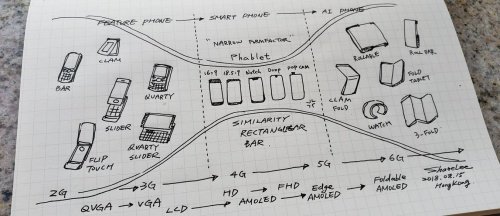 FEATURE PHONE → SMART PHONE → AI PHONE
"NARROW FORMFACTOR"
Phablet
16:9 18.5:9 Notch Drop pop cam
BAR
CLAM
QUARTY
SLIDER
FLIP TOUCH
QUARTY SLIDER
SIMILARITY
RECTANGULAR
BAR
ROLLABLE
ROLL BAR
CLAM FOLD
FOLD TABLET
WATCH
3-FOLD
2G → 3G → 4G → 5G → 6G
QVGA → VGA LCD HD → AMOLED FHD → Edge AMOLED → Foldable AMOLED
2018.02.15
HongKong